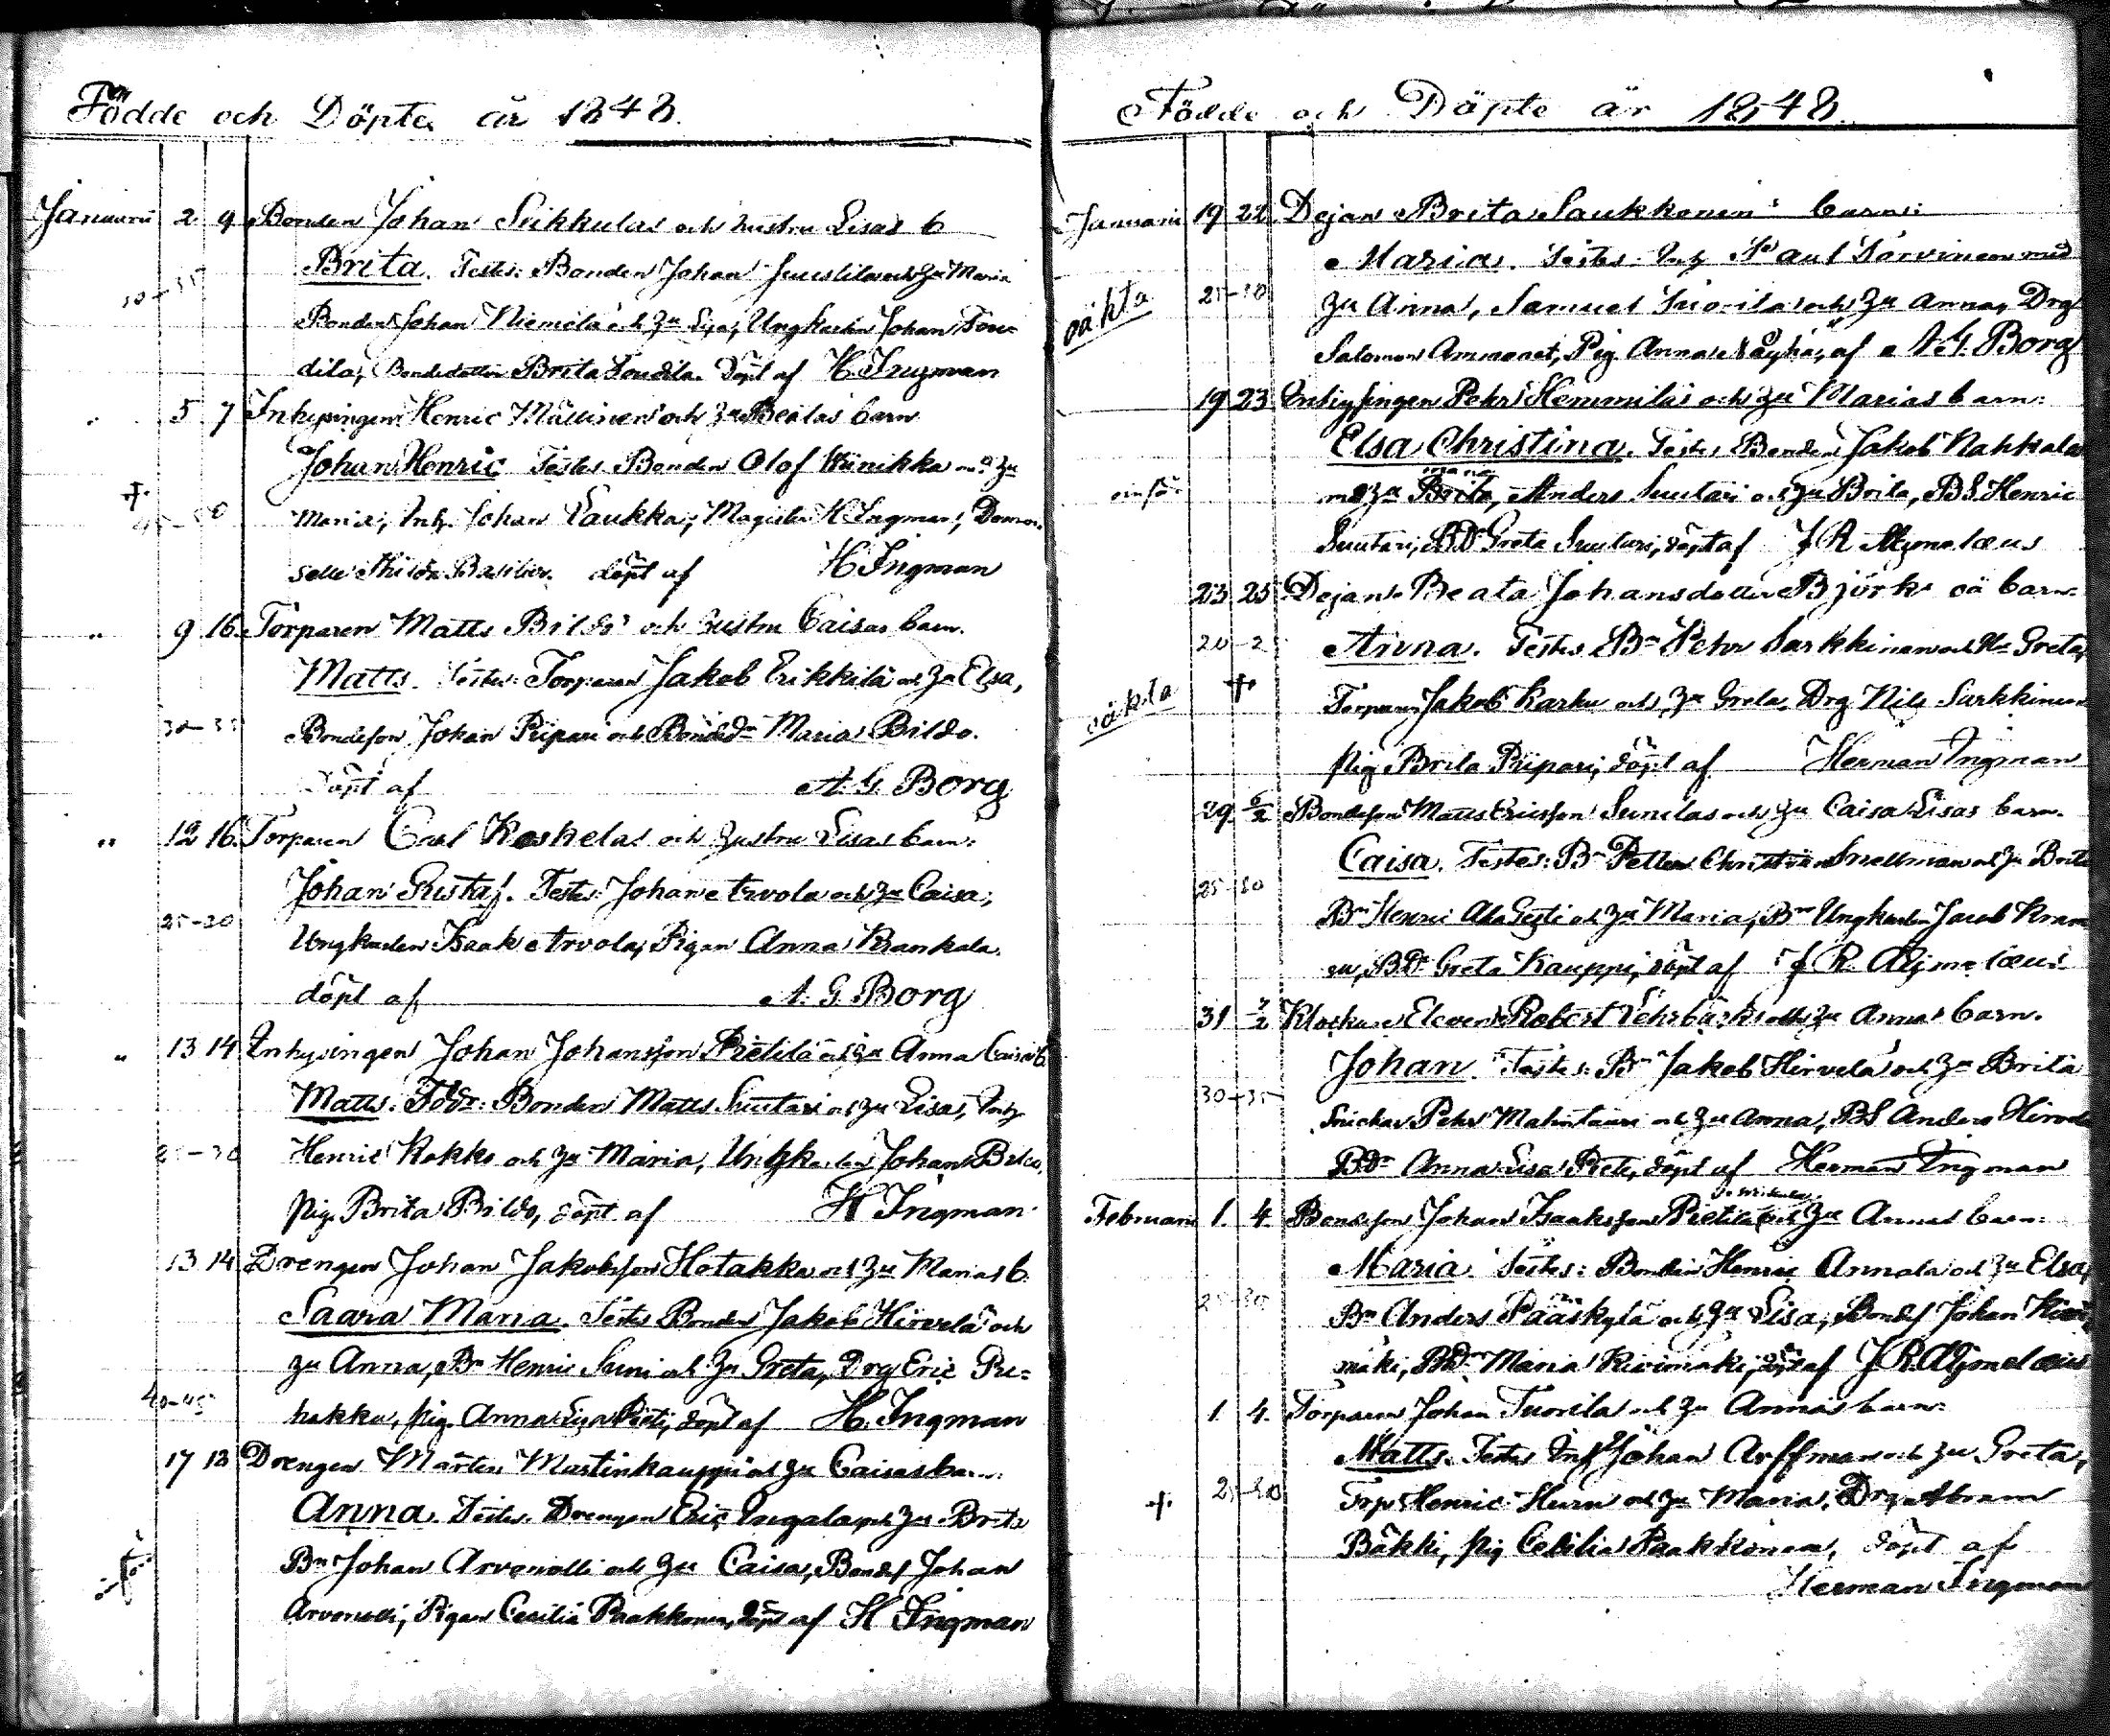 Födde och Döpte år 1848.
Januarii 2 9 Bonden Johan Seikkulas och hustru Lisas b
Brita. Testes: Bonden Johan Juustila och Hu Maria
30-35
Bonden Johan Niemelä och Hu Lisa, Ungkarlen Johan Tou-
dila, Bondedottern Brita Toudila. Döpt af H. Ingman
5 7 Inhysingen Henric Mällinens och Hu Beatas barn
Johan Henric Testes Bonden Olof Wünikka med Hu
+ 45-50
Maria, Inh. Johan Laukka, Magister H Ingman, Demoi-
selle Basilier. döpt af H Ingman
" 9 16. Torparen Matts Bildos och hustru Caisas barn.
Matts. Testes: Torparen Jakob Erikkilä och Hu Elsa,
30-35 Bondeson Johan Piipari och Bonded:r Maria Bildo.
Döpt af A. G. Borg
" 12 16. Torparen Carl Koskelas och hustru Lisas barn:
Johan Gustaf. Testes: Johan Arvola och Hu Caisa;
25-30
Ungkarlen Isaak Arvola, Pigan Anna Krankala.
döpt af A. G. Borg
" 13 14 Inhysingen Johan Johansson Pietilä och Hu Anna Caisas b.
Matts. Bonden Matts Suutari och Hu Lisa, Inh.
25-30 Henric Kokko och Hu Maria, Ungkarlen Johan
Pig. Brita Bildo, döpt af H Ingman
13 14 Drengen Johan Jakobsson Hotakka och Hu Marias b.
Saara Maria. Testes Bonden Jakob Hirvelä och
Hu Anna, Bn Henric Suni och Hu Greta, Drg Eric Pu-
40-45 hakka, pig. Anna Lisa Pieti, döpt af H. Ingman
17 18 Drengen Mårten Martinkauppi och Hu Caisas barn:
Anna. Testes. Drengen Eric Ingala och Hu Brita
Bn Johan Arvonelli och Hu Caisa, Bondes Johan
Arvonelli, Pigan Cecilia Paakkonen, döpt af H Ingman
Födde och Döpte år 1848.
Januarii 19 22 Dejan Brita Saukkonens barn:
Maria. Testes. Inh Paul Tarvinen med
oäkta 25-30 Hu Anna, Samuel Suorila och Hu Anna, Drg
Salomon Ammonet, Pig. Anna Näyhä, af A. G. Borg
19 23 Inhysingen Pehr Hemmilas och Hu Marias barn:
Elsa Christina. Testes Bonden Jakob Nahkala
med Hu Brita, Anders Suutari och Hu Brita, B.S. Henric
Suutari, B.Dr Greta Suutari, döpt af J R Aljmelæus
23 25 Dejan Beata Johansdotter Björks oä barn:
20-25 Anna. Testes Bn Pehr Sarkkinen och Hu Greta,
oäkta + Torparen Jakob Karhu och Hu Greta, Drg Nils Sarkkinen
Pig Brita Piipari, döpt af Herman Ingman
29 6/2 Bondeson Matts Ericsson Sunilas och Hu Caisa Lisas barn.
Caisa. Testes: Bn Petter Christian Snellman och Hu Brita
25-30
Bn Henric och Hu Maria, Bn Ungkarlen Jacob
B.Dr Greta Kauppi, döpt af J R. Aljmelæus
31 7/2 Klockare Eleven Robert Lehrbäcks och Hu Annas barn.
Johan. Testes: Bn Jakob Hirvelä och Hu Brita
30-35
Snickar Pehr och Hu Anna, BS Anders Hirvelä
B.Dr Anna Lisa Pieti, döpt af Herman Ingman
Februarii 1. 4 Bondeson Johan Isaksson Pietilä och Hu Annas barn:
Maria. Testes: Bonden Henric Annala och Hu Elsa,
25-30
Bn Anders Pääskylä och Hu Lisa, Bondes Johan Kivi-
mäki, B.Dr Maria Kivimäki, döpt af J. R. Aljmelæus
1. 4. Torparen Johan Tuorila och Hu Annas barn:
Matts. Testes Inh Johan Arffman och Hu Greta,
+ 25-30 Torp. Henric och Hu Maria, Drg Abram
Bäkki, Pig Cecilia Paakkonen, döpt af
Herman Ingman